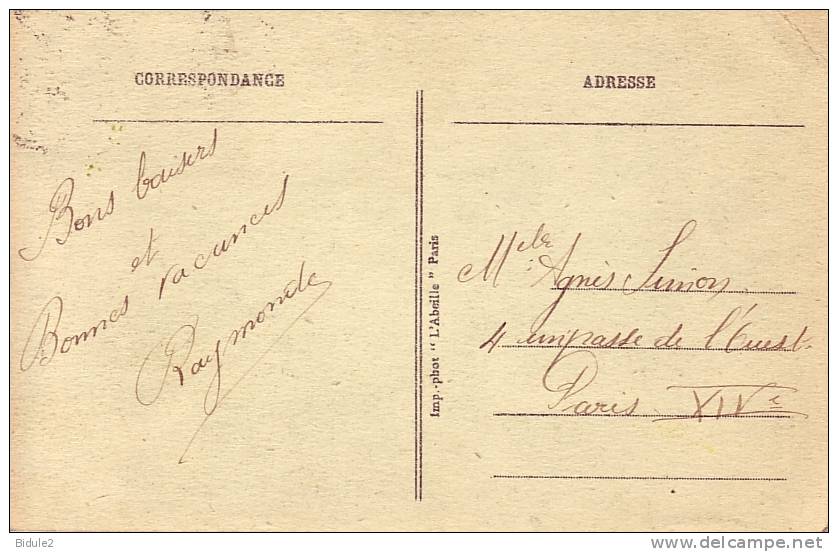 CORRESPONDANCE
Bons baisers
et
Bonnes vacances
Raymonde
Imp.-phot "L'Abeille" Paris
ADRESSE
Melle Agnès Simon
4 impasse de l'Ouest.
Paris XIVe
Bidule2
www.delcampe.net